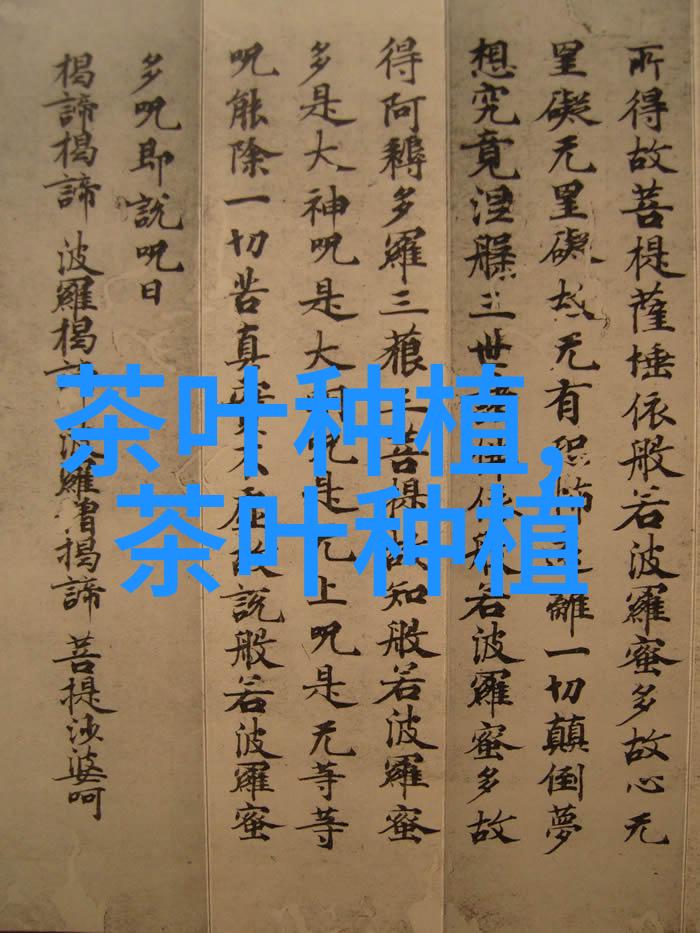 所得故菩提薩埵依般若波羅蜜多故心无
罣礙无罣礙故无有恐怖遠離一切顛倒夢
想究竟涅槃三世諸佛依般若波羅蜜多故
得阿耨多羅三藐三菩提故知般若波羅蜜
多是大神呪是大明呪是无上呪是无等等
呪能除一切苦真實不虛故說般若波羅蜜
多呪即說呪曰
揭諦揭諦 波羅揭諦 波羅僧揭諦 菩提沙婆呵
茶叶种植,
茶叶种植